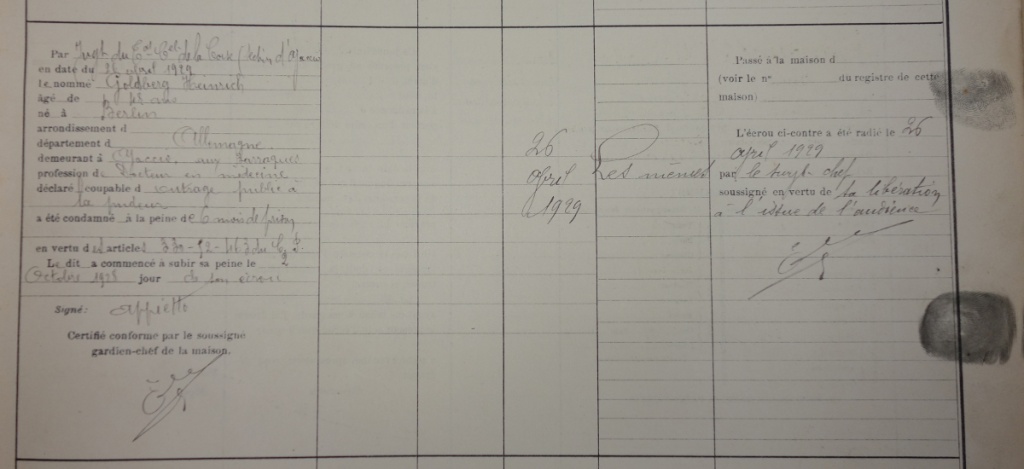 Par Jugt du Cor de la Corse
en date du 26 avril 1929
le nommé Goldberg Heinrich
âgé de 48 ans
né à Berlin
arrondissement d
département d Allemagne
demeurant à Ajaccio, aux Sarragues
profession de Docteur en médecine
déclaré coupable d'outrage public à
la pudeur
a été condamné à la peine de 6 mois de prison
en vertu des articles 330-52-463 du C. P.
Le dit a commencé à subir sa peine le 2
Octobre 1928 jour de son écrou
Signé: Appietto
Certifié conforme par le soussigné
gardien-chef de la maison.
26
avril
1929
Les mêmes
Passé à la maison d
(voir le n° du registre de cette
maison)
L'écrou ci-contre a été radié le 26
avril 1929
par le survt chef
soussigné en vertu de sa libération
à l'issue de l'audience